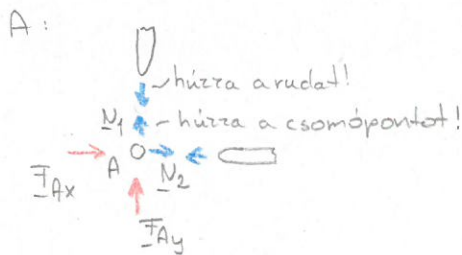 A:
húzza a rudat!
N1
húzza a csomópontot!
A
N2
FAx
FAy